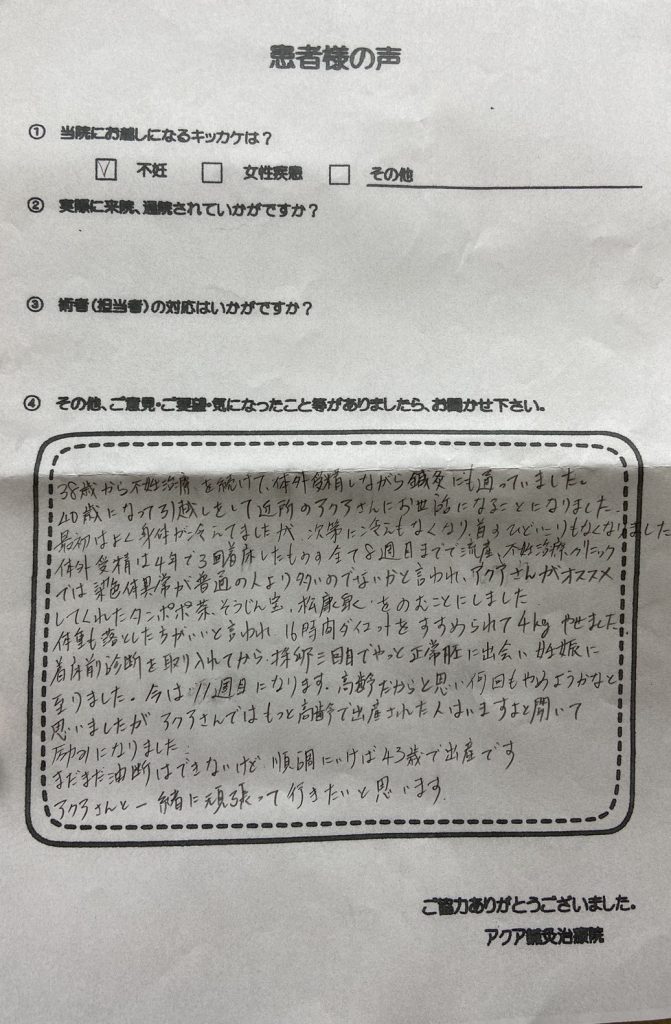 患者様の声
① 当院にお越しになるキッカケは？
☑ 不妊 □ 女性疾患 □ その他
② 実際に来院、通院されていかがですか？
③ 術者(担当者)の対応はいかがですか？
④ その他、ご意見・ご要望・気になったこと等がありましたら、お聞かせ下さい。
38歳から不妊治療を続けて、体外受精しながら鍼灸にも通っていました。
40歳になって引越しをして近所のアクアさんにお世話になることになりました。
最初はよく身体が冷えてましたが、次第に冷えもなくなり、首のひどいこりもなくなりました
体外受精は4年で3回着床したものの全て8週目までで流産、不妊治療クリニック
では染色体異常が普通の人より多いのでないかと言われ、アクアさんがオススメ
してくれたタンポポ茶、そうじん宝、松康泉をのむことにしました
体重も落とした方がいいと言われ 16時間ダイエットをすすめられて4kgやせました。
着床前診断を取り入れてから、採卵三回目でやっと正常胚に出会い妊娠に
至りました。今は11週目になります。高齢だからと思い何回もやめようかなと
思いましたがアクアさんではもっと高齢で出産された人はいますよと聞いて
励みになりました。
まだまだ油断はできないけど 順調にいけば43歳で出産です
アクアさんと一緒に頑張って行きたいと思います。
ご協力ありがとうございました。
アクア鍼灸治療院